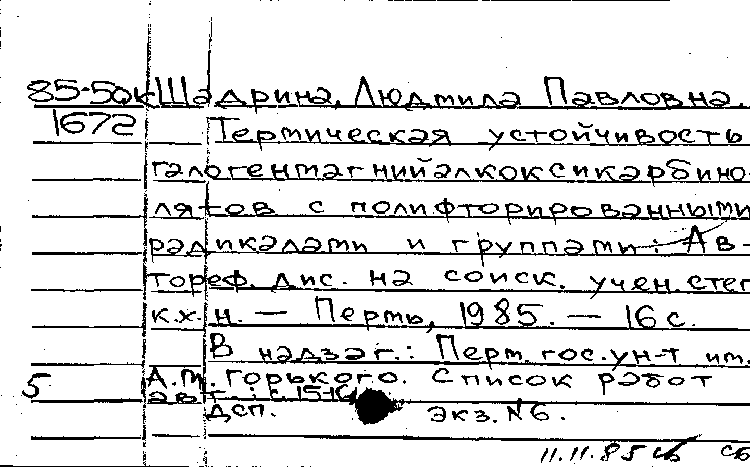 85-5дк Шадрина, Людмила Павловна.
1672 Термическая устойчивость
галогенмагнийалкоксикарбино-
лятов с полифторированными
радикалами и группами: Ав-
тореф. дис. на соиск. учен. степ
к.х.н. — Пермь, 1985. — 16 с.
В надзаг.: Перм. гос. ун-т им.
5 А.М. Горького. Список работ
авт.: с. 15-16
ДСП. экз. №6.
11.11.85